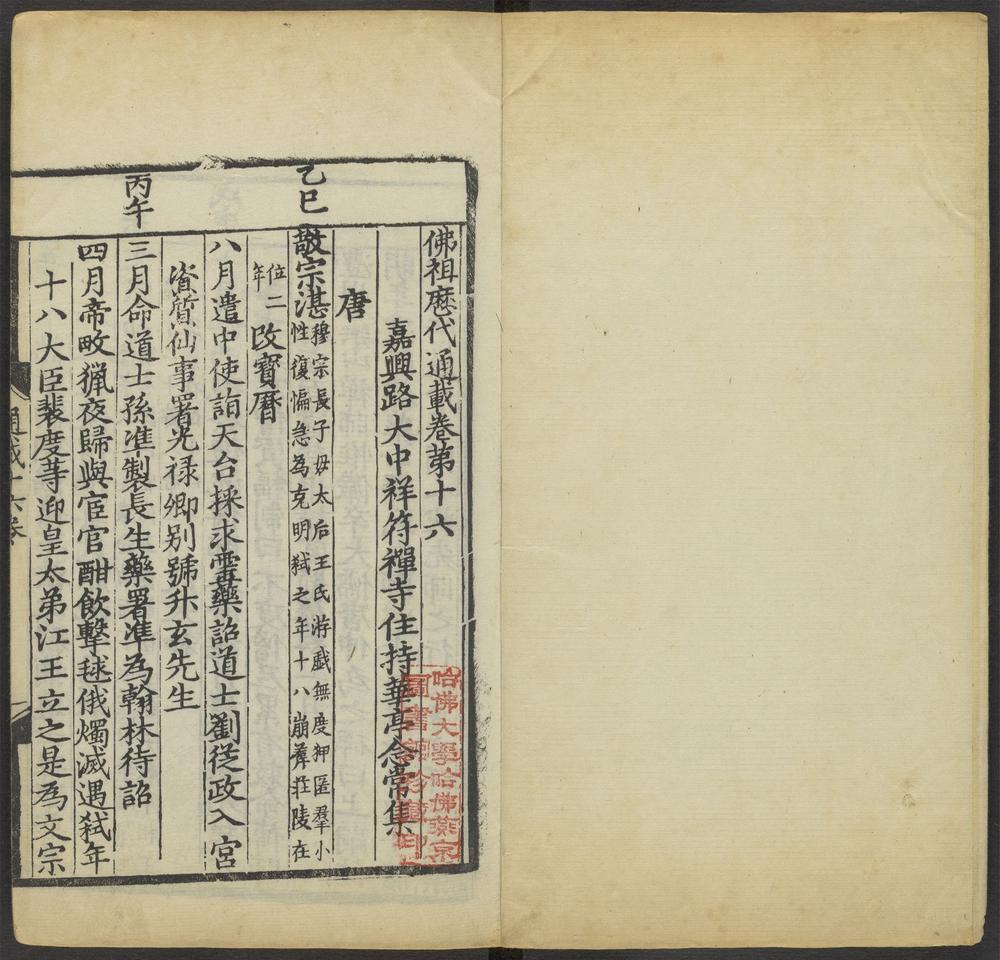 佛祖歷代通載卷第十六
嘉興路大中祥符禪寺住持華亭念常集
唐
乙巳
敬宗湛穆宗長子母太后王氏游戲無度狎匿羣小
性復惼急為克明弒之年十八崩葬莊陵在
位二
年
改寶曆
八月遣中使詣天台採求靈藥詔道士劉從政入宮
資質仙事署光祿卿別號升玄先生
丙午
三月命道士孫準製長生藥署準為翰林待詔
四月帝畋獵夜歸與宦官酣飲擊毬俄燭滅遇弒年
十八大臣裴度等迎皇太弟江王立之是為文宗
通載十六卷
哈佛大學哈佛燕京
圖書館珍藏印